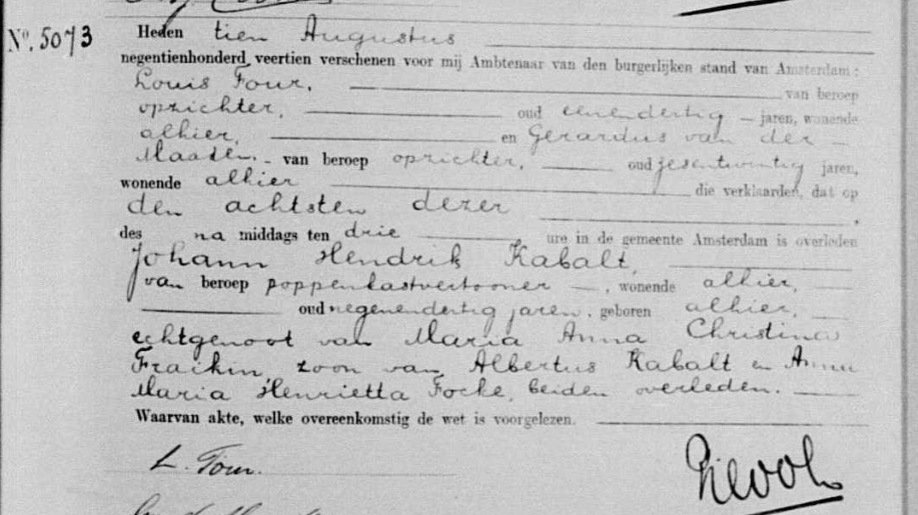 No. 5073
Heden tien Augustus
negentienhonderd veertien verschenen voor mij Ambtenaar van den burgerlijken stand van Amsterdam:
Louis Four, van beroep
opzichter, oud eenendertig jaren, wonende
alhier, en Gerardus van der
Maaten van beroep opzichter, oud zesentwintig jaren,
wonende alhier die verklaarden, dat op
den achtsten dezer,
des na middags ten drie ure in de gemeente Amsterdam is overleden
Johann Hendrik Kabalt,
van beroep poppenkastvertooner, wonende alhier,
oud negenendertig jaren, geboren alhier,
echtgenoot van Maria Anna Christina
Fraikin, zoon van Albertus Kabalt en Anna
Maria Henrietta Focke, beiden overleden.
Waarvan akte, welke overeenkomstig de wet is voorgelezen.
L. Four.